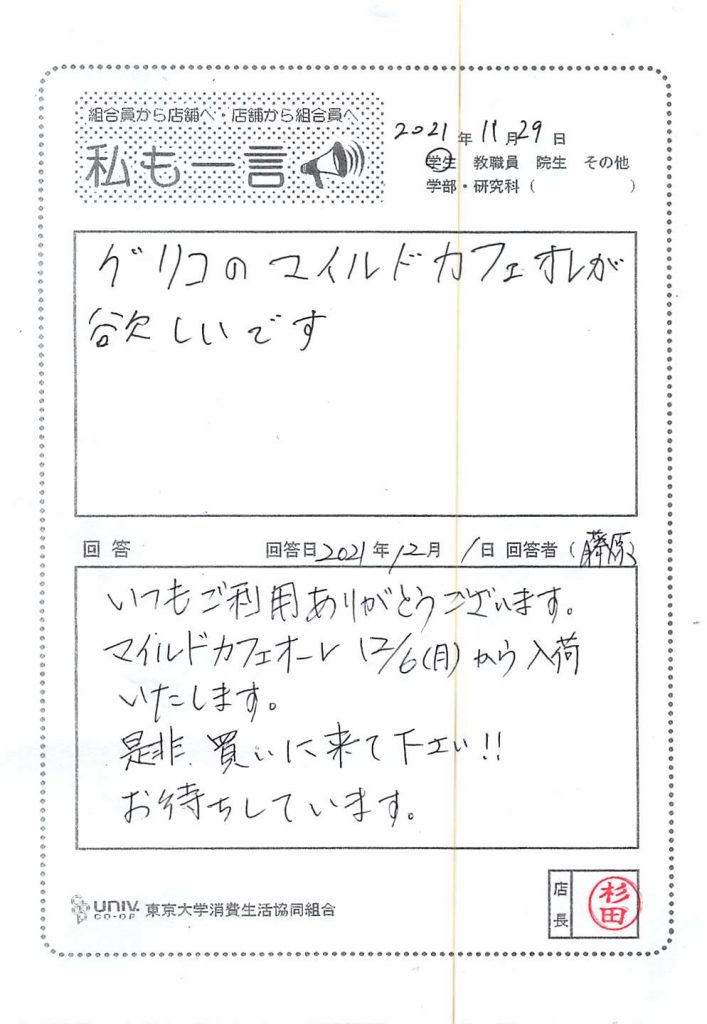 組合員から店舗へ・店舗から組合員へ
私も一言
2021年11月29日
学生 教職員 院生 その他
学部・研究科（ ）
グリコのマイルドカフェオレが
欲しいです
回答 回答日2021年12月1日 回答者（藤原）
いつもご利用ありがとうございます。
マイルドカフェオーレ 12/6(月)から入荷
いたします。
是非、買いに来て下さい!!
お待ちしています。
UNIV. CO-OP 東京大学消費生活協同組合
店長
杉田